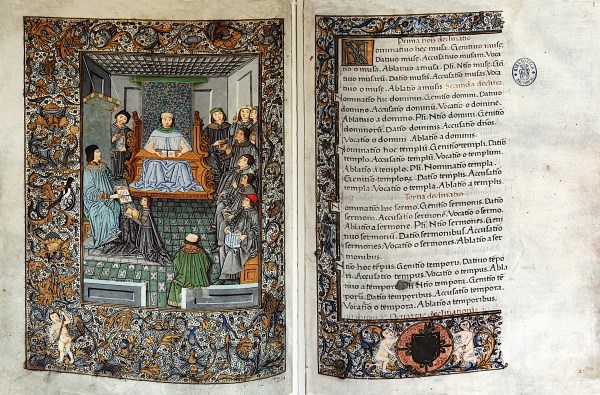 Prima nois declinatio
Nominatiuo hec muse. Genitiuo muse:
Datiuo muse. Accusatiuo musam. Voca
tio o musa. Ablatiuo a musa. Pli. Ntio muse. Gtio
musarũ. Datio musis. Accusatio musas. Voca
tiuo o muse. Ablatiuo a musis. Secunda declina
Nominatio hic dominus. Genitio domini. Datiuo
domino. Accusatio dominũ. Vocatio o domine.
Ablatiuo a domino. Pli. Ntio domini. Genitio
dominorũ. Datio dominis. Accusatio dños.
Vocatio o domini. Ablatio a dominis.
Nominatio hoc templũ. Genitio templi. Datio
templo. Accusatio templũ. Vocatio o templum.
Ablatio a templo. Pli. Nominatio templa.
Genitio templorũ. Datio templis. Accusatio
templa. Vocatio o templa. Ablatio a templis.
Tertia declinatio
Nominatio hic sermo. Genitio sermonis. Datio
sermoni. Accusatio sermonẽ. Vocatio o sermo.
Ablatio a sermone. Pli. Ntio sermones. Geni
tiuo sermonũ. Datio sermonibus. Accusatio
sermones. Vocatio o sermones. Ablatio a ser
monibus.
Ntio hoc tẽpus. Genitio temporis. Datiuo tẽpo
ri. Accusatio tempus. Vocatio o tempus. Abla
tiuo a tempore. Pli. Ntio tempora. Genitio tempo
rũ. Datio temporibus. Accusatio tempora.
Vocatio o tempora. Ablatio a temporibus.
Quarta declinatio